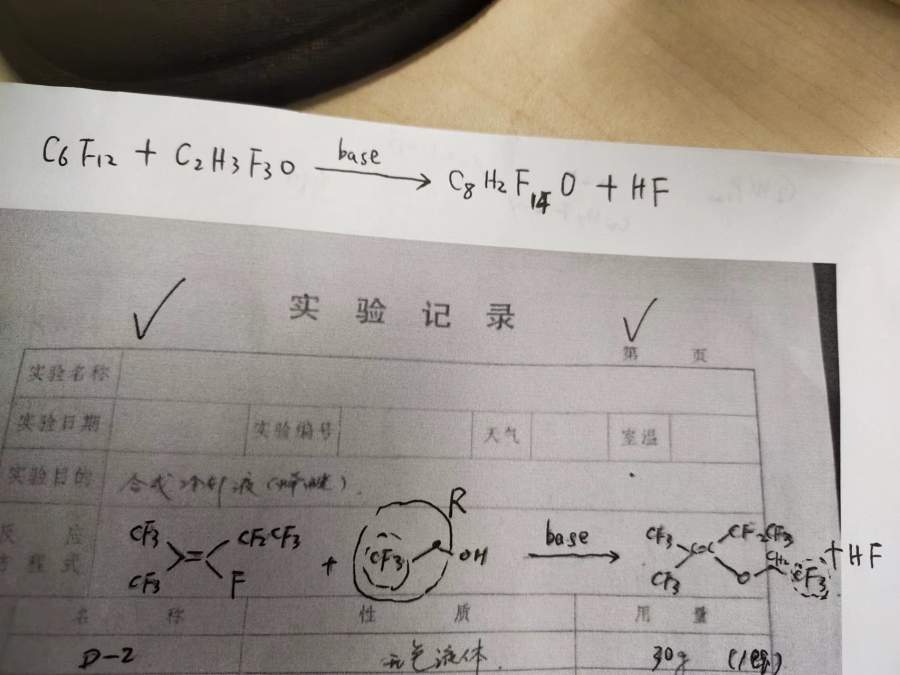 C6F12 + C2H3F3O base C8H2F14O + HF
实验记录
第 页
实验名称
实验日期 实验编号 天气 室温
实验目的 合成冷却液
反应方程式
CF3 CF3 CF2CF3 F + CF3 OH R base CF3 CF3 C=C CF2CF3 O CH2 CF3 + HF
名称 性质 用量
D-2 无色液体. 30g (1eq)